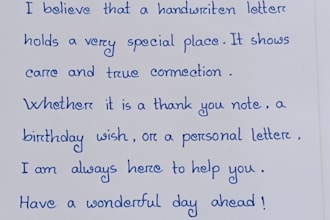 I believe that a handwriten letter
holds a very special place. It shows
care and true connection.
Whether it is a thank you note, a
birthday wish, or a personal letter,
I am always here to help you.
Have a wonderful day ahead!